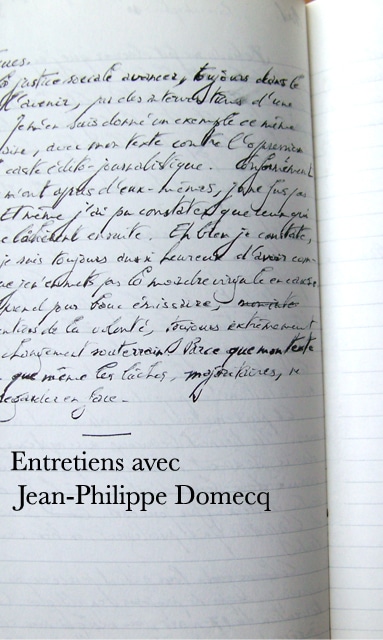 justice sociale avancer, toujours dans le
l'avenir, par des interventions d'une
J'en suis donné un exemple ce même
avec mon texte contre l'oppression
caste édito-journalistique. Conformément
m'ont appris d'eux-mêmes, je ne fus pas
Et même j'ai pu constater que ceux qui
ensuite. Eh bien je constate,
je suis toujours aussi heureux d'avoir
pas la moindre virgule en cause
pour bouc émissaire,
de la volonté, toujours extrêmement
changement souterrain. Parce que mon texte
que même les lâches, majoritaires,
regarder en face.
Entretiens avec
Jean-Philippe Domecq